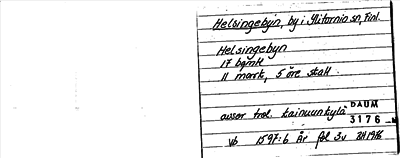 Helsingebyn, by i Ylitornio sn, Finl.
Helsingebyn
17 bymål
11 mark, 5 öre skatt.
avser trol. Kainuunkylä DAUM
3176
vb 1597:6 År fol 3v